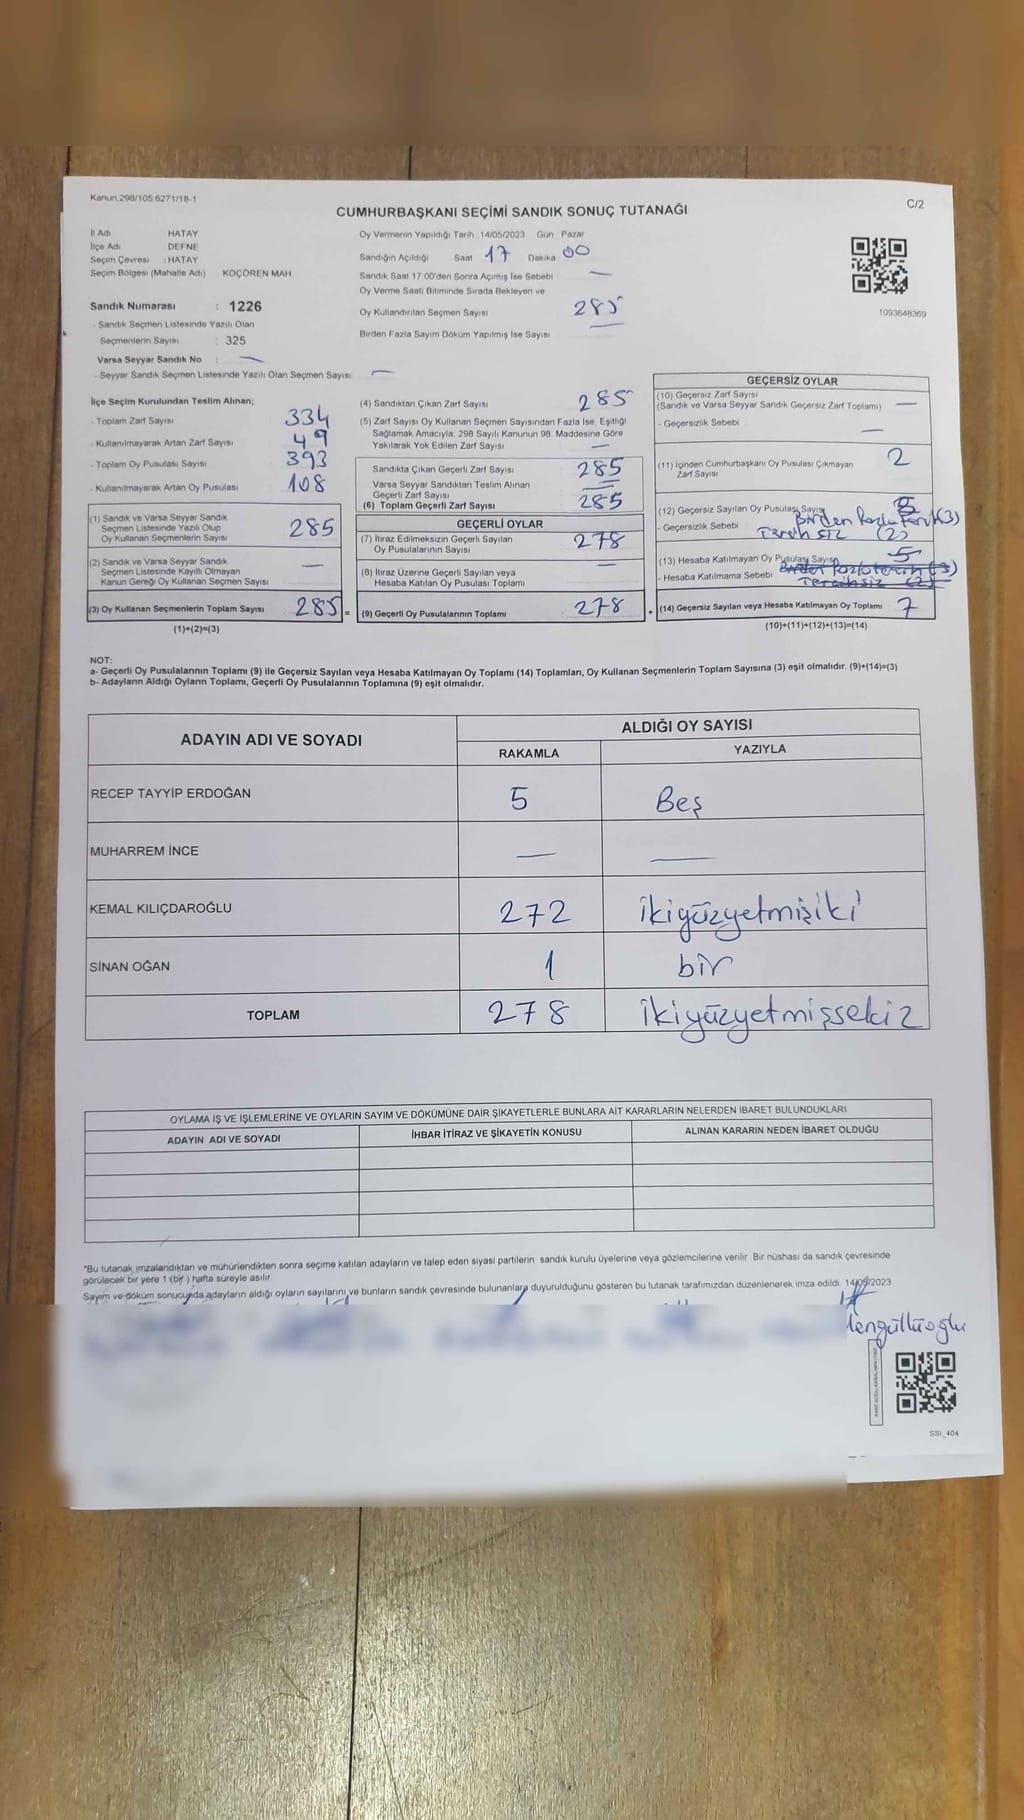 Kanun:298/105;6271/18-1
C/2
CUMHURBAŞKANI SEÇİMİ SANDIK SONUÇ TUTANAĞI
İl Adı HATAY
İlçe Adı DEFNE
Seçim Çevresi : HATAY
Seçim Bölgesi (Mahalle Adı) : KOÇÖREN MAH
Sandık Numarası : 1226
- Sandık Seçmen Listesinde Yazılı Olan
Seçmenlerin Sayısı : 325
Varsa Seyyar Sandık No : —
- Seyyar Sandık Seçmen Listesinde Yazılı Olan Seçmen Sayısı —
Oy Vermenin Yapıldığı Tarih 14/05/2023 Gün Pazar
Sandığın Açıldığı Saat 17 Dakika 00
Sandık Saat 17.00'den Sonra Açımış İse Sebebi —
Oy Verme Saati Bitiminde Sırada Bekleyen ve
Oy Kullandırılan Seçmen Sayısı 285
Birden Fazla Sayım Döküm Yapılmış İse Sayısı —
1093648369
İlçe Seçim Kurulundan Teslim Alınan;
- Toplam Zarf Sayısı 334
- Kullanılmayarak Artan Zarf Sayısı 49
- Toplam Oy Pusulası Sayısı 393
- Kullanılmayarak Artan Oy Pusulası 108
(1) Sandık ve Varsa Seyyar Sandık
Seçmen Listesinde Yazılı Olup
Oy Kullanan Seçmenlerin Sayısı 285
(2) Sandık ve Varsa Seyyar Sandık
Seçmen Listesinde Kayıtlı Olmayan
Kanun Gereği Oy Kullanan Seçmen Sayısı —
(3) Oy Kullanan Seçmenlerin Toplam Sayısı 285 =
(1)+(2)=(3)
(4) Sandıktan Çıkan Zarf Sayısı 285
(5) Zarf Sayısı Oy Kullanan Seçmen Sayısından Fazla İse, Eşitliği
Sağlamak Amacıyla, 298 Sayılı Kanunun 98. Maddesine Göre
Yakılarak Yok Edilen Zarf Sayısı —
Sandıkta Çıkan Geçerli Zarf Sayısı 285
Varsa Seyyar Sandıktan Teslim Alınan
Geçerli Zarf Sayısı —
(6) Toplam Geçerli Zarf Sayısı 285
GEÇERLİ OYLAR
(7) İtiraz Edilmeksizin Geçerli Sayılan
Oy Pusulalarının Sayısı 278
(8) İtiraz Üzerine Geçerli Sayılan veya
Hesaba Katılan Oy Pusulası Toplamı —
(9) Geçerli Oy Pusulalarının Toplamı 278 +
GEÇERSİZ OYLAR
(10) Geçersiz Zarf Sayısı
(Sandık ve Varsa Seyyar Sandık Geçersiz Zarf Toplamı) —
- Geçersizlik Sebebi —
(11) İçinden Cumhurbaşkanı Oy Pusulası Çıkmayan
Zarf Sayısı 2
(12) Geçersiz Sayılan Oy Pusulası Sayısı 5
- Geçersizlik Sebebi Birden fazla (3)
Tercihsiz (2)
(13) Hesaba Katılmayan Oy Pusulası Sayısı 5
- Hesaba Katılmama Sebebi Birden fazla tercih (3)
Tercihsiz (2)
(14) Geçersiz Sayılan veya Hesaba Katılmayan Oy Toplamı 7
(10)+(11)+(12)+(13)=(14)
NOT:
a- Geçerli Oy Pusulalarının Toplamı (9) ile Geçersiz Sayılan veya Hesaba Katılmayan Oy Toplamı (14) Toplamları, Oy Kullanan Seçmenlerin Toplam Sayısına (3) eşit olmalıdır. (9)+(14)=(3)
b- Adayların Aldığı Oyların Toplamı, Geçerli Oy Pusulalarının Toplamına (9) eşit olmalıdır.
ADAYIN ADI VE SOYADI
ALDIĞI OY SAYISI
RAKAMLA YAZIYLA
RECEP TAYYİP ERDOĞAN 5 Beş
MUHARREM İNCE — —
KEMAL KILIÇDAROĞLU 272 ikiyüzyetmişiki
SİNAN OĞAN 1 bir
TOPLAM 278 ikiyüzyetmişsekiz
OYLAMA İŞ VE İŞLEMLERİNE VE OYLARIN SAYIM VE DÖKÜMÜNE DAİR ŞİKAYETLERLE BUNLARA AİT KARARLARIN NELERDEN İBARET BULUNDUKLARI
ADAYIN ADI VE SOYADI İHBAR İTİRAZ VE ŞİKAYETİN KONUSU ALINAN KARARIN NEDEN İBARET OLDUĞU
"Bu tutanak imzalandıktan ve mühürlendikten sonra seçime katılan adayların ve talep eden siyasi partilerin sandık kurulu üyelerine veya gözlemcilerine verilir. Bir nüshası da sandık çevresinde
görülecek bir yere 1 (bir ) hafta süreyle asılır.
Sayım ve döküm sonucunda adayların aldığı oyların sayılarını ve bunların sandık çevresinde bulunanlara duyurulduğunu gösteren bu tutanak tarafımızdan düzenlenerek imza edildi. 14/05/2023
lengüllüoğlu
SSI_404